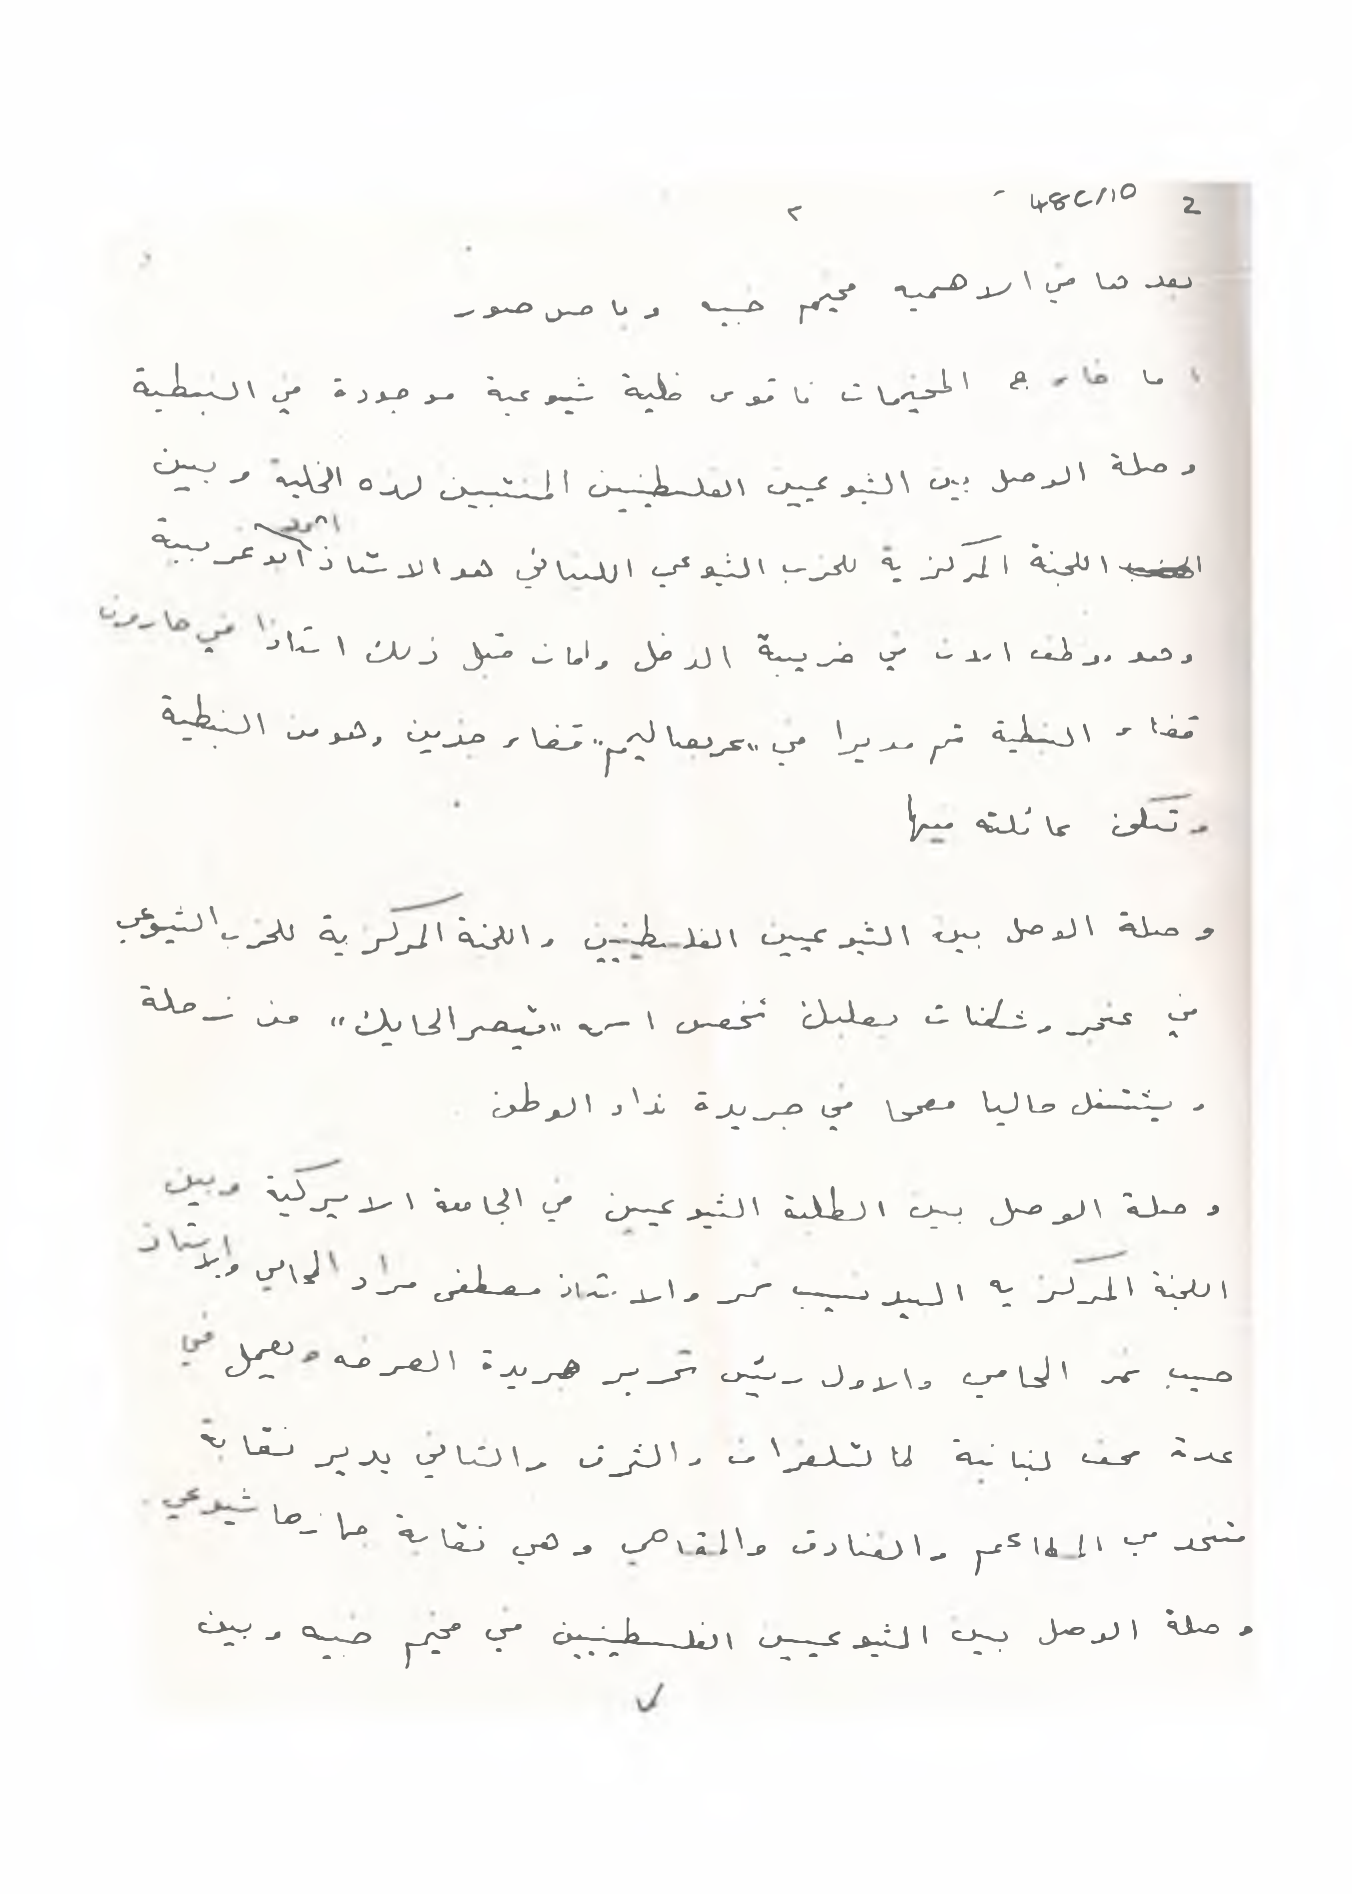 48C/10 2
٢
بعدها في الاهميه مخيم ضبيه وباص صور
اما خارج المخيمات فاقوى خلية شيوعية موجودة في النبطية
وصلة الوصل بين الشيوعيين الفلسطينيين المنتسبين لهذه الخلية وبين
اللجنة المركزية للحزب الشيوعي اللبناني هو الاستاذ
وهو موظف الان في ضريبة الدخل وكان قبل ذلك استاذا في
قضاء النبطية ثم مديرا في "عرمصاليم" قضاء جزين وهو من النبطية
وتسكن عائلته فيها
وصلة الوصل بين الشيوعيين الفلسطينيين واللجنة المركزية للحزب الشيوعي
في عنجر وثكنات بعلبك شخص اسمه "قيصر الحايك" من زحلة
ويشتغل حاليا في جريدة نداء الوطن
وصلة الوصل بين الطلبة الشيوعيين في الجامعة الاميركية وبين
اللجنة المركزيه السيد نسيب نمر والاستاذ مصطفى مراد المحامي والاستاذ
حبيب نمر المحامي والاول رئيس تحرير جريدة الصرخه ويعمل في
عدة صحف لبنانية كالتلغراف والشرق والثاني يدير نقابة
مستخدمي المطاعم والفنادق والمقاهي وهي نقابة طرازها شيوعي.
وصلة الوصل بين الشيوعيين الفلسطينيين في مخيم ضبيه وبين